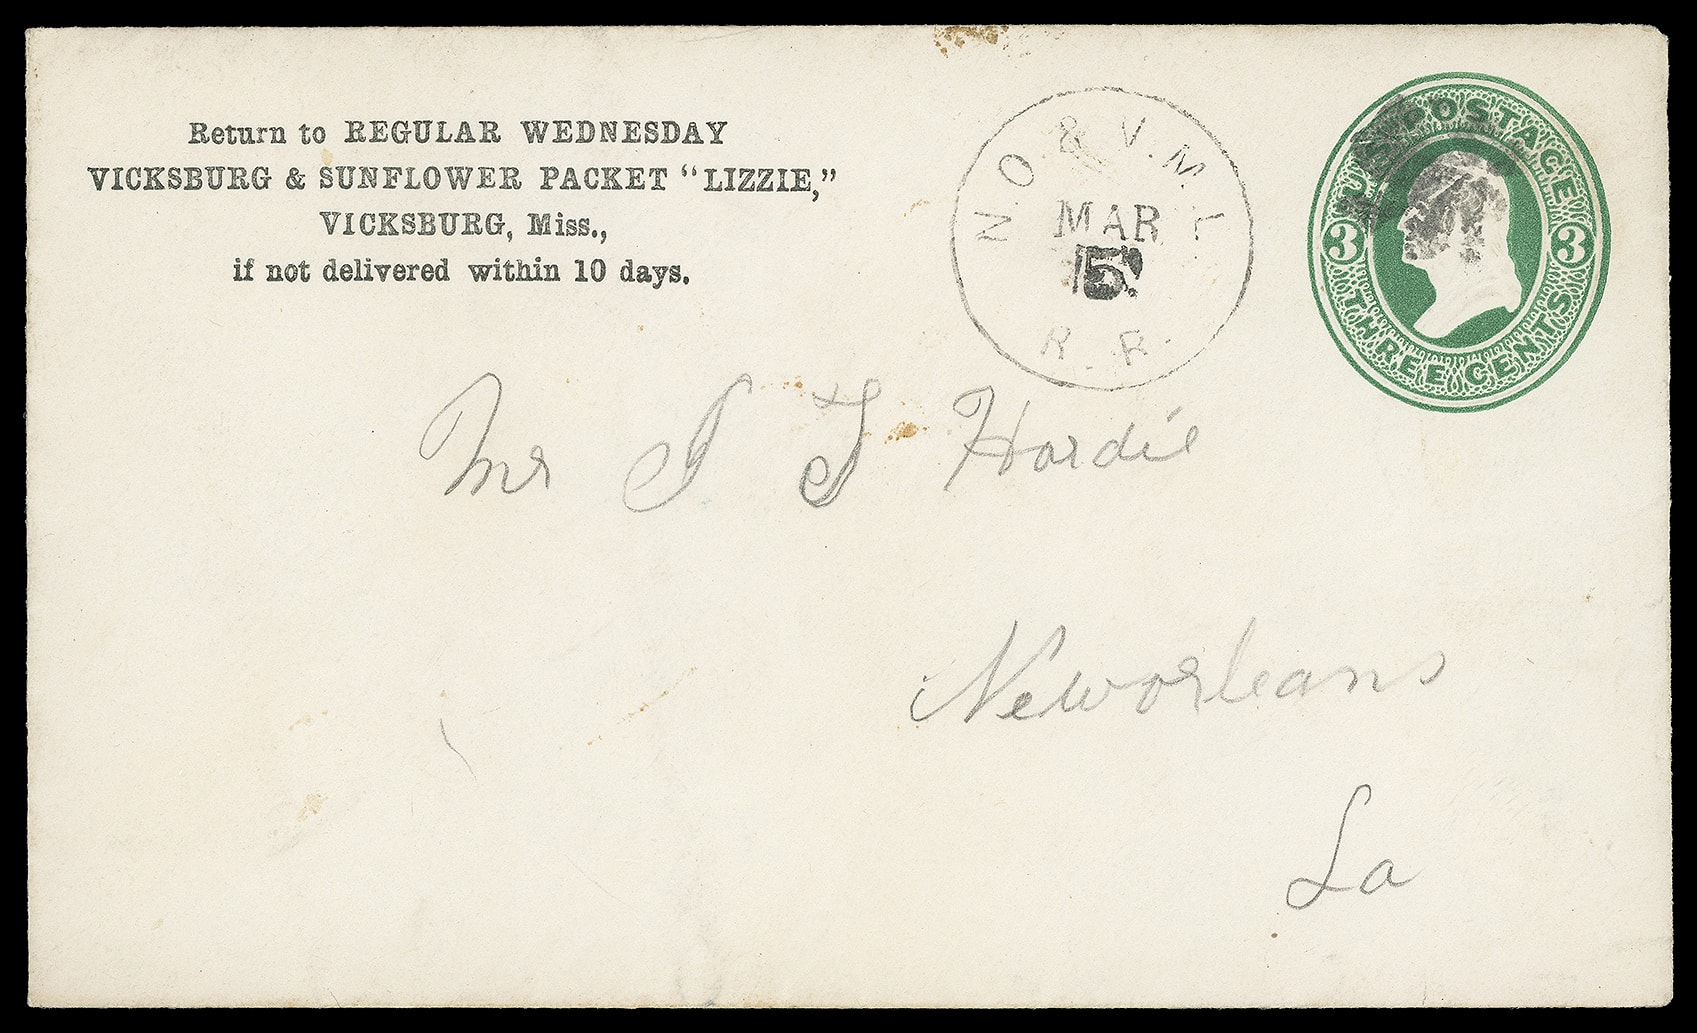 Return to REGULAR WEDNESDAY
VICKSBURG & SUNFLOWER PACKET “LIZZIE,”
VICKSBURG, Miss.,
if not delivered within 10 days.
N.O. & V.M.L.
MAR
5
R.R.
U.S. POSTAGE
3 3
THREE CENTS
Mr S T Hardie
Neworleans
La